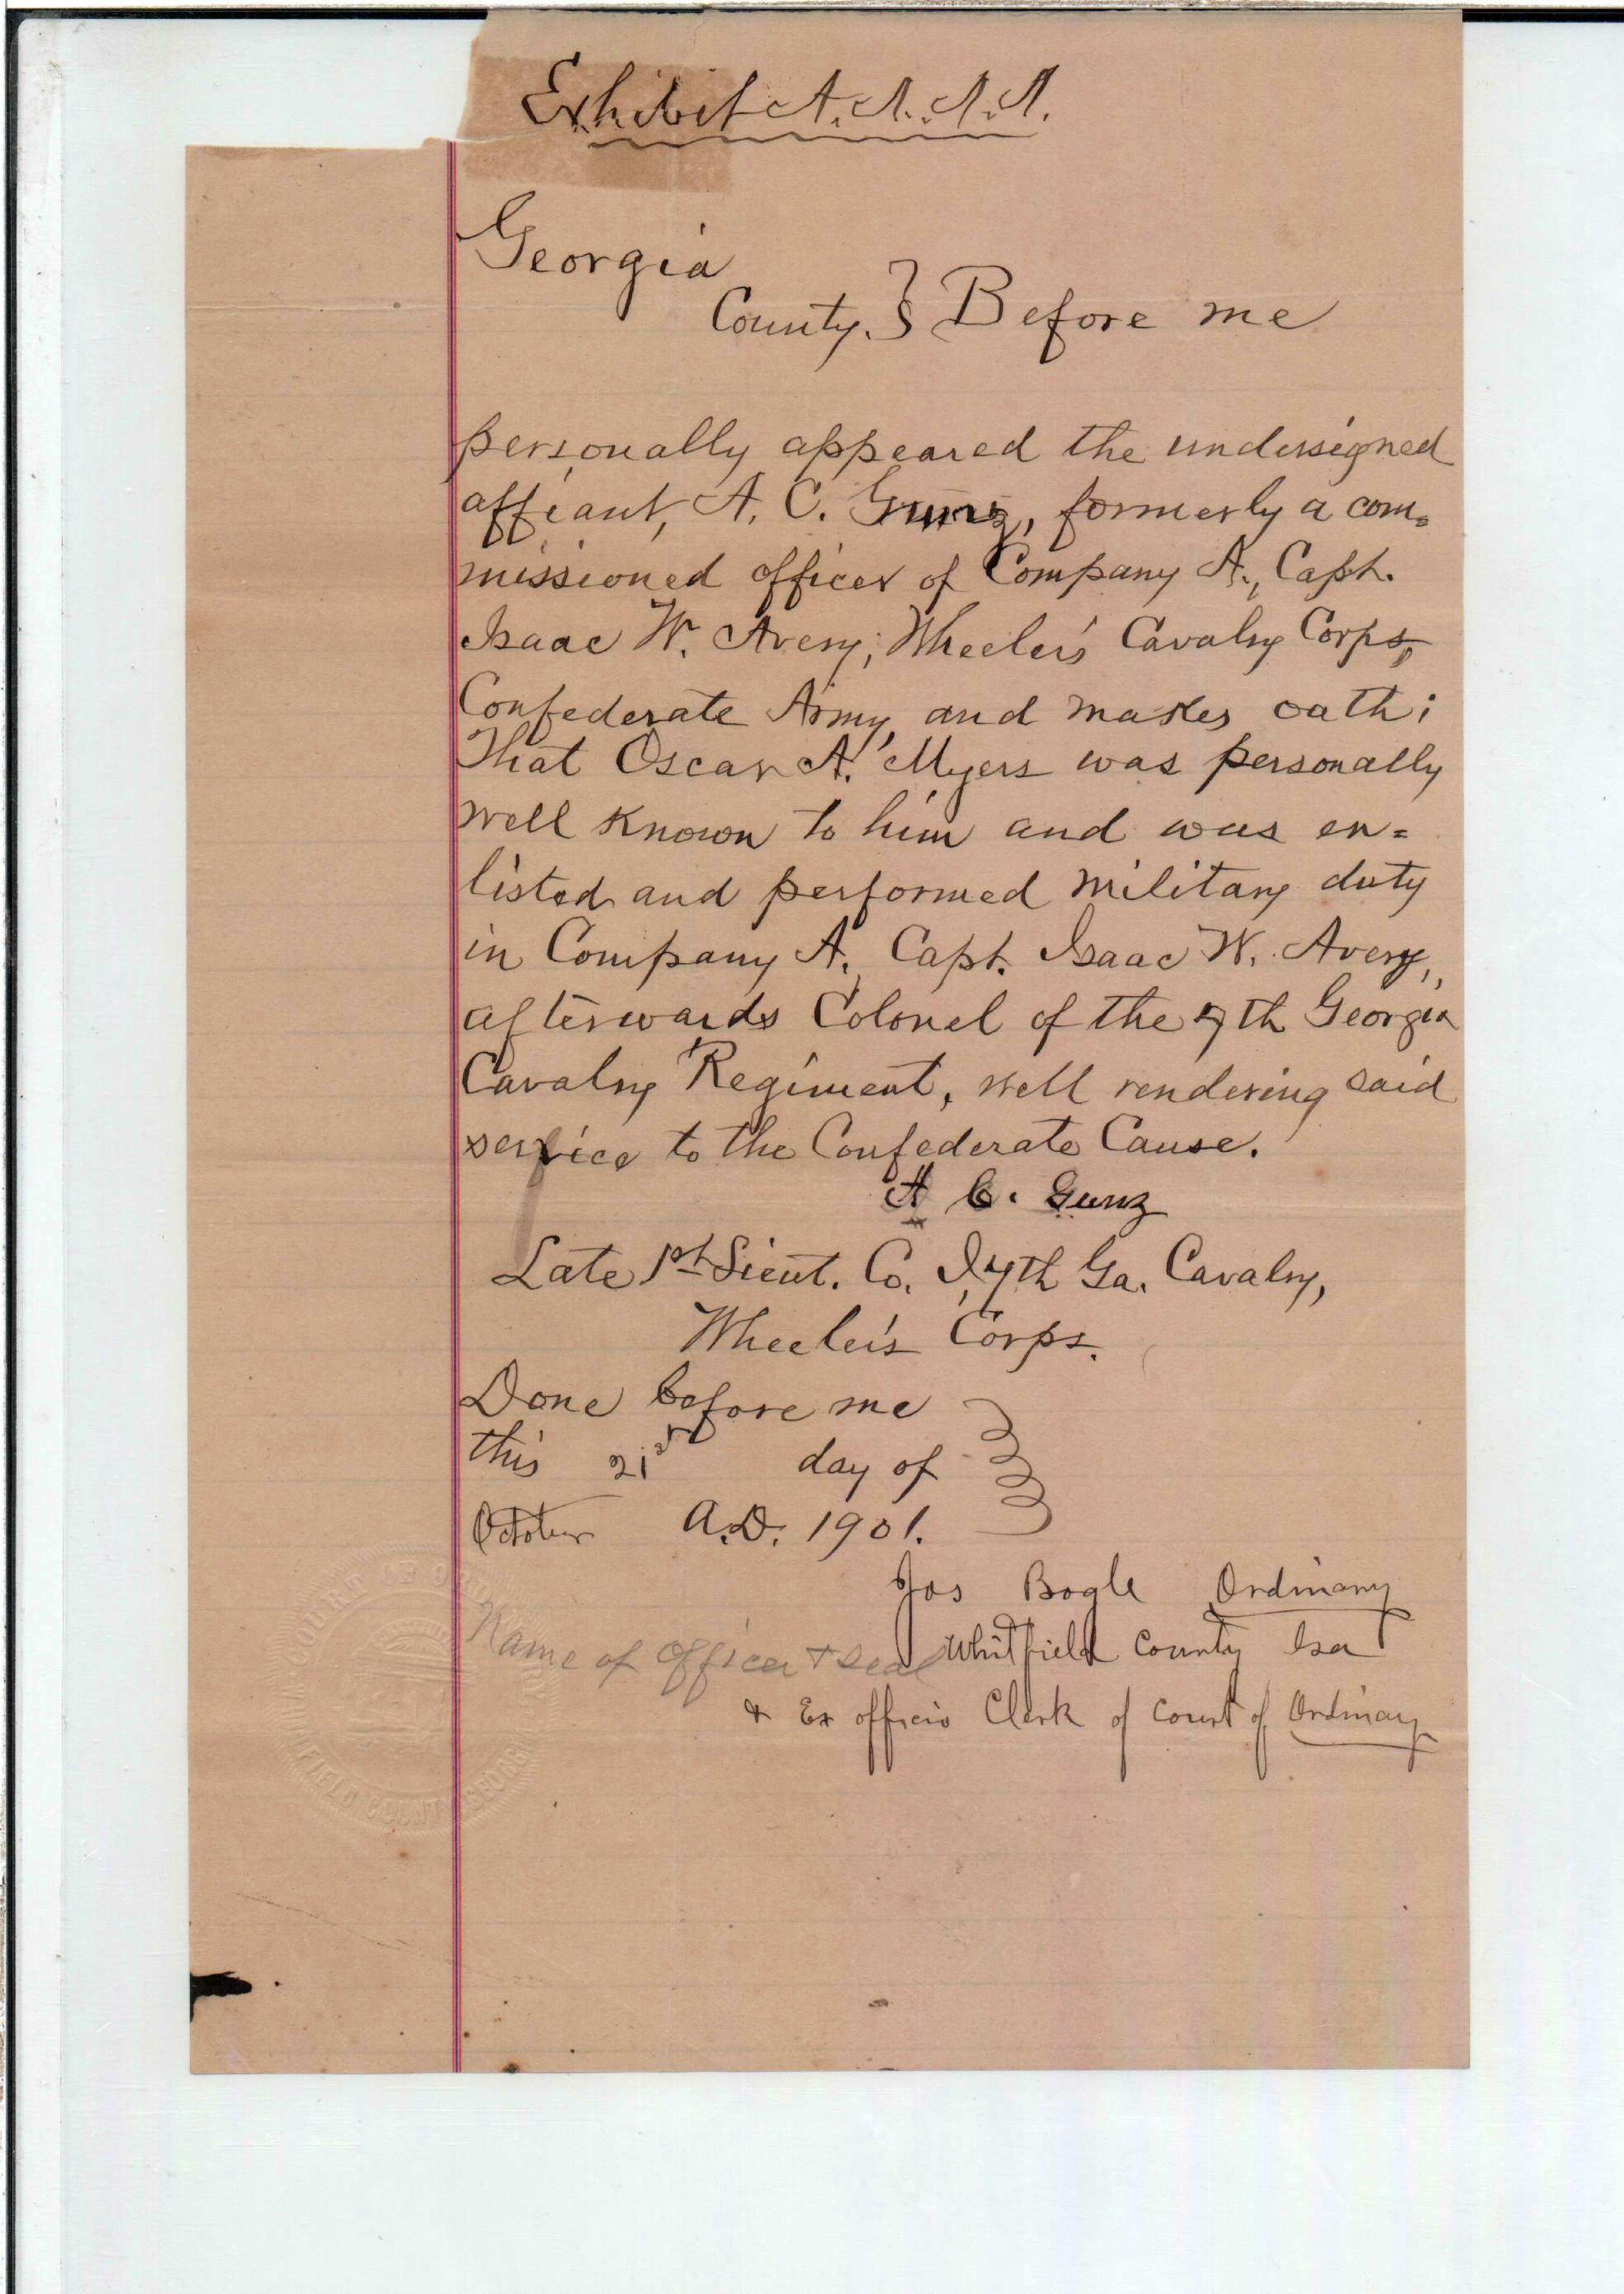 Exhibit A.A.A.A.
Georgia
County. } Before me
personally appeared the undersigned
affiant, A. C. Gunz, formerly a com=
missioned officer of Company A., Capt.
Isaac W. Avery, Wheeler's Cavalry Corps,
Confederate Army, and makes oath:
That Oscar A. Myers was personally
well known to him and was en=
listed and performed military duty
in Company A., Capt. Isaac W. Avery,
afterwards Colonel of the 4th Georgia
Cavalry Regiment, well rendering said
service to the Confederate Cause.
A C. Gunz
Late 1st Lieut. Co. I, 4th Ga. Cavalry,
Wheeler's Corps.
Done before me
this 21st day of
October A.D. 1901.
Jos Bogle Ordinary
Name of officer + seal Whitfield County Ga
& Ex officio Clerk of Court of Ordinary
COURT OF
FIELD COUNTY GEORGIA